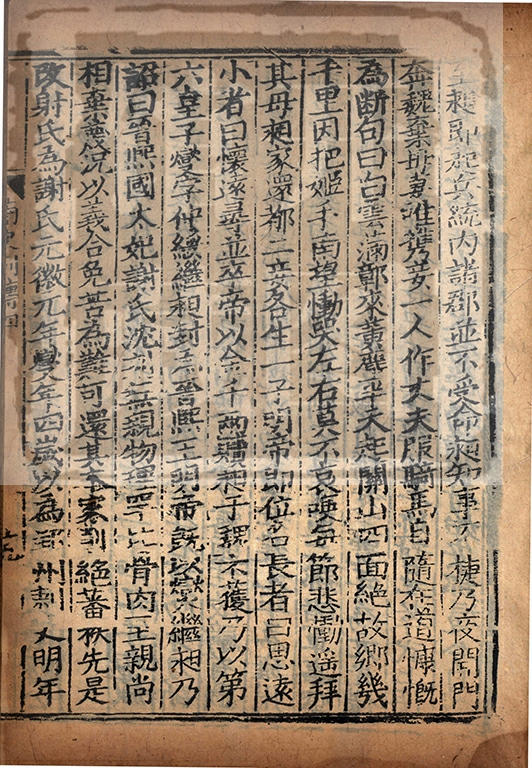 至昶即起兵統內諸郡並不受命昶知事不捷乃夜開門
奔魏棄母妻唯攜妾一人作丈夫服騎馬自隨在道慷慨
為断句曰白雲滿鄣來黃塵半天起關山四面絕故鄉幾
千里因把姬手南望慟哭左右莫不哀哽每節悲慟遥拜
其母昶家還都二妾各生一子明帝即位名長者曰思遠
小者曰懷遠尋並卒帝以金千兩贖昶于魏不獲乃以第
六皇子燮字仲綏繼昶封為晉熙王明帝既以燮繼昶乃
詔曰晉熙國太妃謝氏沈刻無親物理罕比骨肉至親尚
相棄蔑況以義合免苦為難可還其本家削絕蕃秩先是
改射氏為謝氏元徽元年燮年四歲以為郢州刺 明年